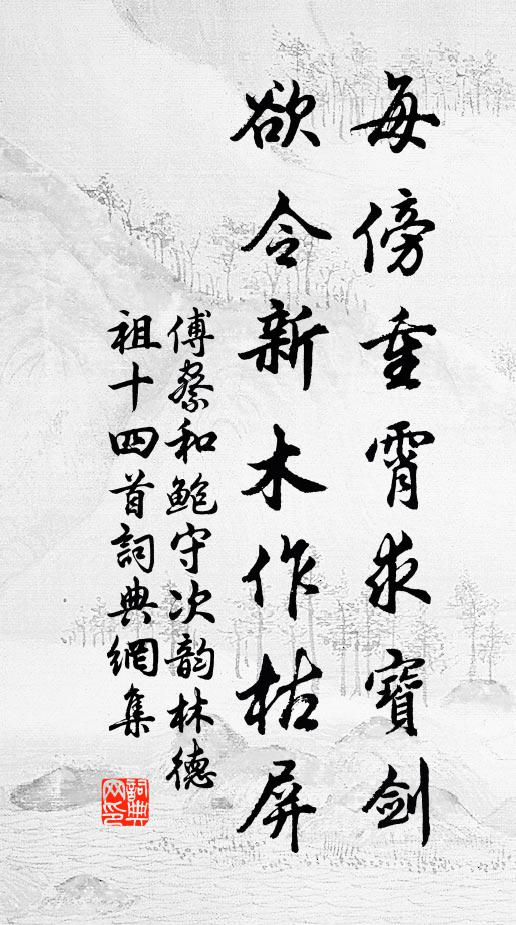 每傍重霄求寶劍
欲令新木作枯屏
傅察和鮑守次韵林德
祖十四首詞典網集
詞典網印